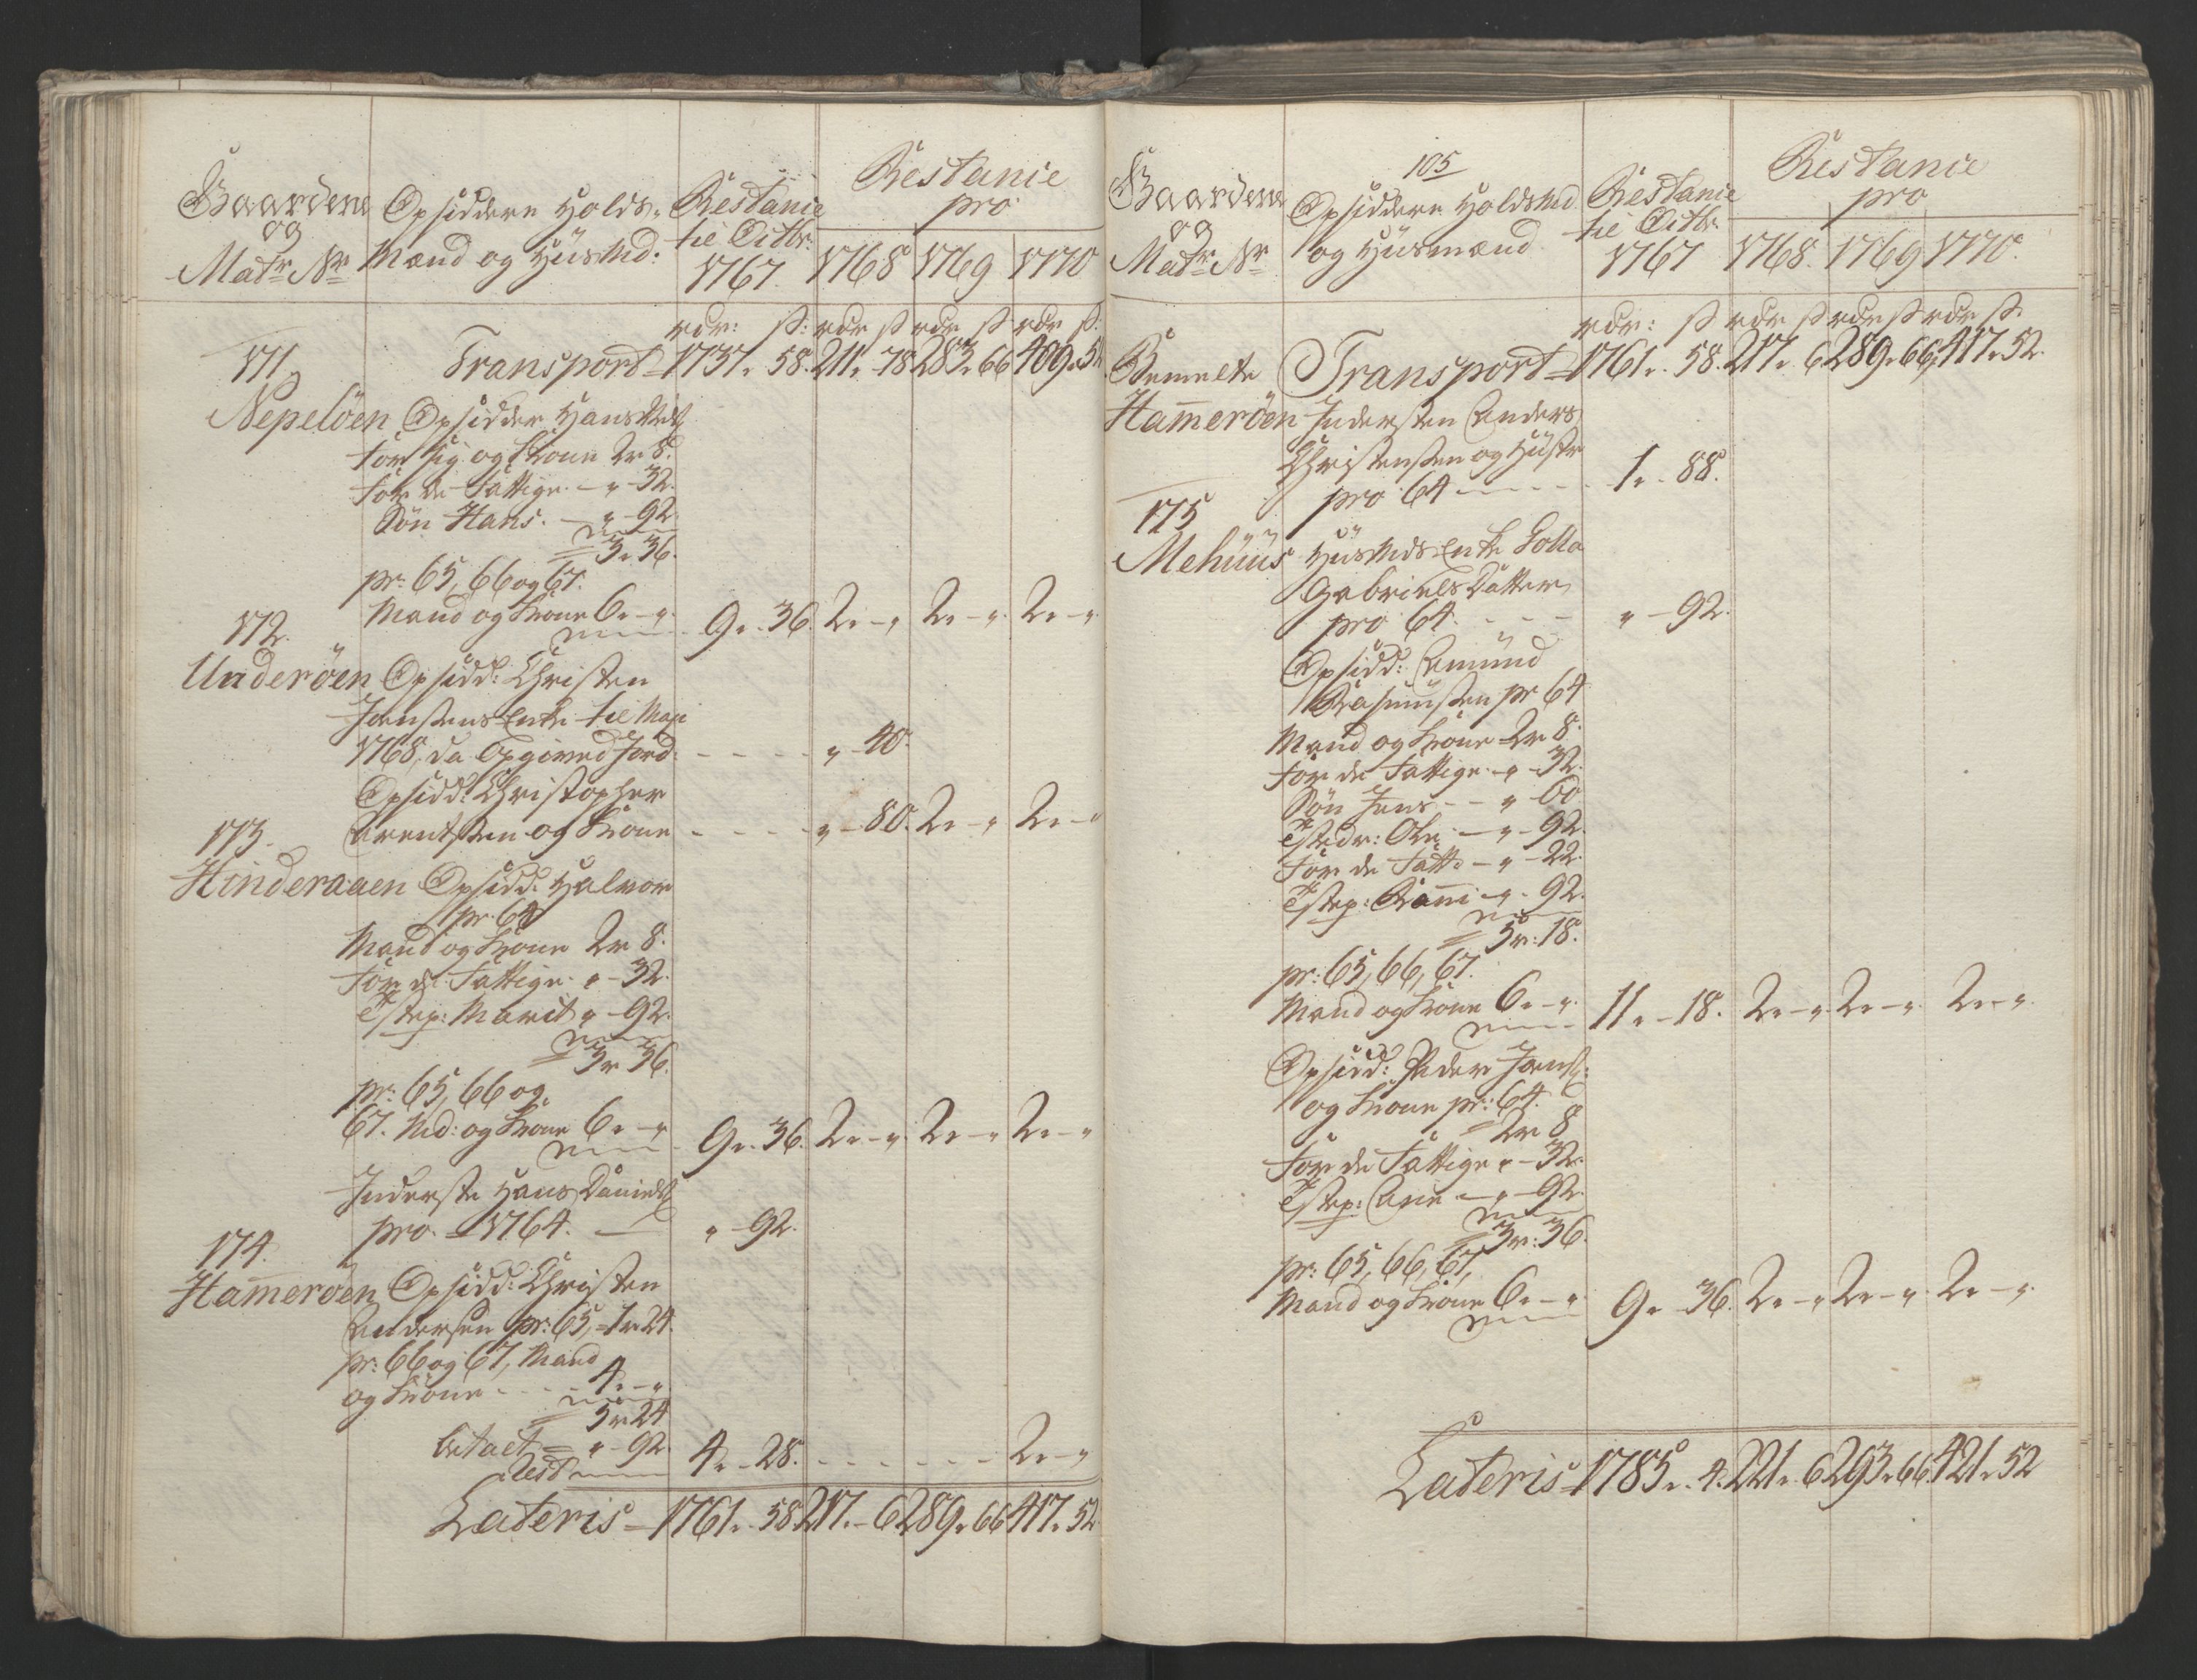 Gaardene
og
Matr. Nr.
Opsiddere Holds-
Mænd og Huusmd:
Restance
til Octbr:
1767.
Restance
pro
1768 1769 1770
rdr: ß: rdr ß rdr ß rdr ß:
171. Transport = 1737 „ 58. 211 „ 78 283 „ 66 409 „ 52
Nepelöen Opsidder Hans
for sig og Kone 2r 8.
for de Fattige — „ - 32.
Søn Hans. — „ - 92.
= 3 „ 36.
pr: 65, 66 og 67.
Mand og Kone 6 „ - „ 9 „ 36. 2 „ - „ 2 „ - „ 2 „ - „
172.
Underöen Opsidd: Christen
Jensens Enke til Maji
1768, da Opgived Jord. - - - - „ - 40.
Opsidd: Christopher
Arentsen og Kone - - - - „ - 80. 2 „ - „ 2 „ - „
173.
Hinderaaen Opsidd: Halvor
pr: 64
Mand og Kone 2r 8.
for de Fattige „ - 32.
Tstep: Marit „ - 92.
= 3r 36.
pr: 65, 66 og
67. Md: og Kone 6 „ - „ 9 „ 36. 2 „ - „ 2 „ - „ 2 „ - „
Inderste Hans Daniels
pro 1764. — „ - 92.
174.
Ham̄eröen Opsidd: Christen
Andersen pr: 65, = 1r 24.
pr: 66 og 67, Mand
og Kone - - - - 4 „ - „
= 5r 24
betalt = „ - 92.
Rest 4 „ - 28. - - - - - - 2 „ - „
Lateris = 1761 „ 58 217 „ - 6 289 „ 66 417 „ 52
105
Gaardene
og
Matr. Nr.
Opsiddere Holdsmd
og Huusmænd
Restance
til Octbr:
1767
Restance
pro
1768. 1769 1770.
rdr: ß rdr ß rdr ß rdr ß
Bemelte Transport = 1761 „ 58. 217 „ 6 289 „ 66, 417 „ 52.
Ham̄eröen Indersten Anders
Christensen og Hustr
pro 64 - - - - 1 „ - 88.
175
Mehuus Huusmds Enke
Gabriels Datter
pro 64. - - - „ - 92.
Opsidd: Amund
Rasmussen pr 64
Mand og Kone 2r 8.
for de Fattige - „ - 32.
Søn Jens - - „ - 60
Tstedr: Ole - „ - 92.
for de Fatt: - „ - 22.
Tstep: - „ - 92.
= 5r: 18.
pr: 65, 66, 67.
Mand og Kone 6 „ - „ 11 „ - 18. 2 „ - „ 2 „ - „ 2 „ - „
Opsidd: Peder Jens:
og Kone pr: 64.
= 2r 8
for de Fattige „ - 32.
Tstep: Ane - „ - 92
= 3r: 36.
pr: 65, 66, 67,
Mand og Kone 6 „ - „ 9 „ - 36. 2 „ - „ 2 „ - „ 2 „ - „
Lateris = 1785 „ 4. 221 „ 6 293 „ 66. 421 „ 52